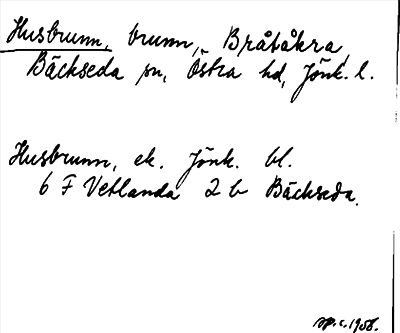 Husbrunn, brunn, Bråtåkra,
Bäckseda sn, Östra hd, Jönk. l.
Husbrunn, ek. Jönk. bl.
6 F Vetlanda 2 b Bäckseda.
1958.